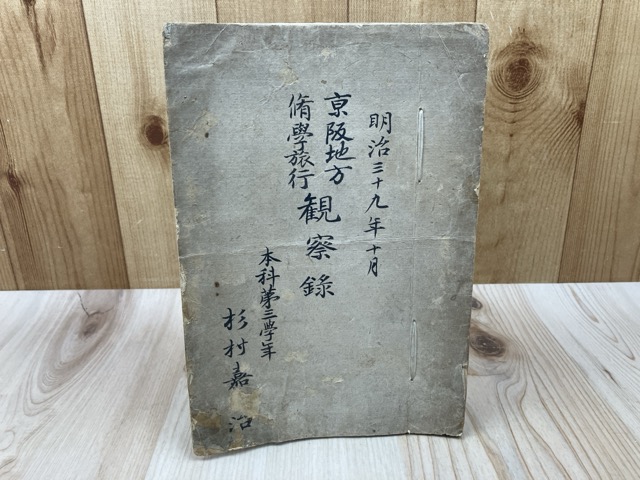 明治三十九年十月
京阪地方
脩學旅行
観察錄
本科第三學年
杉村嘉治